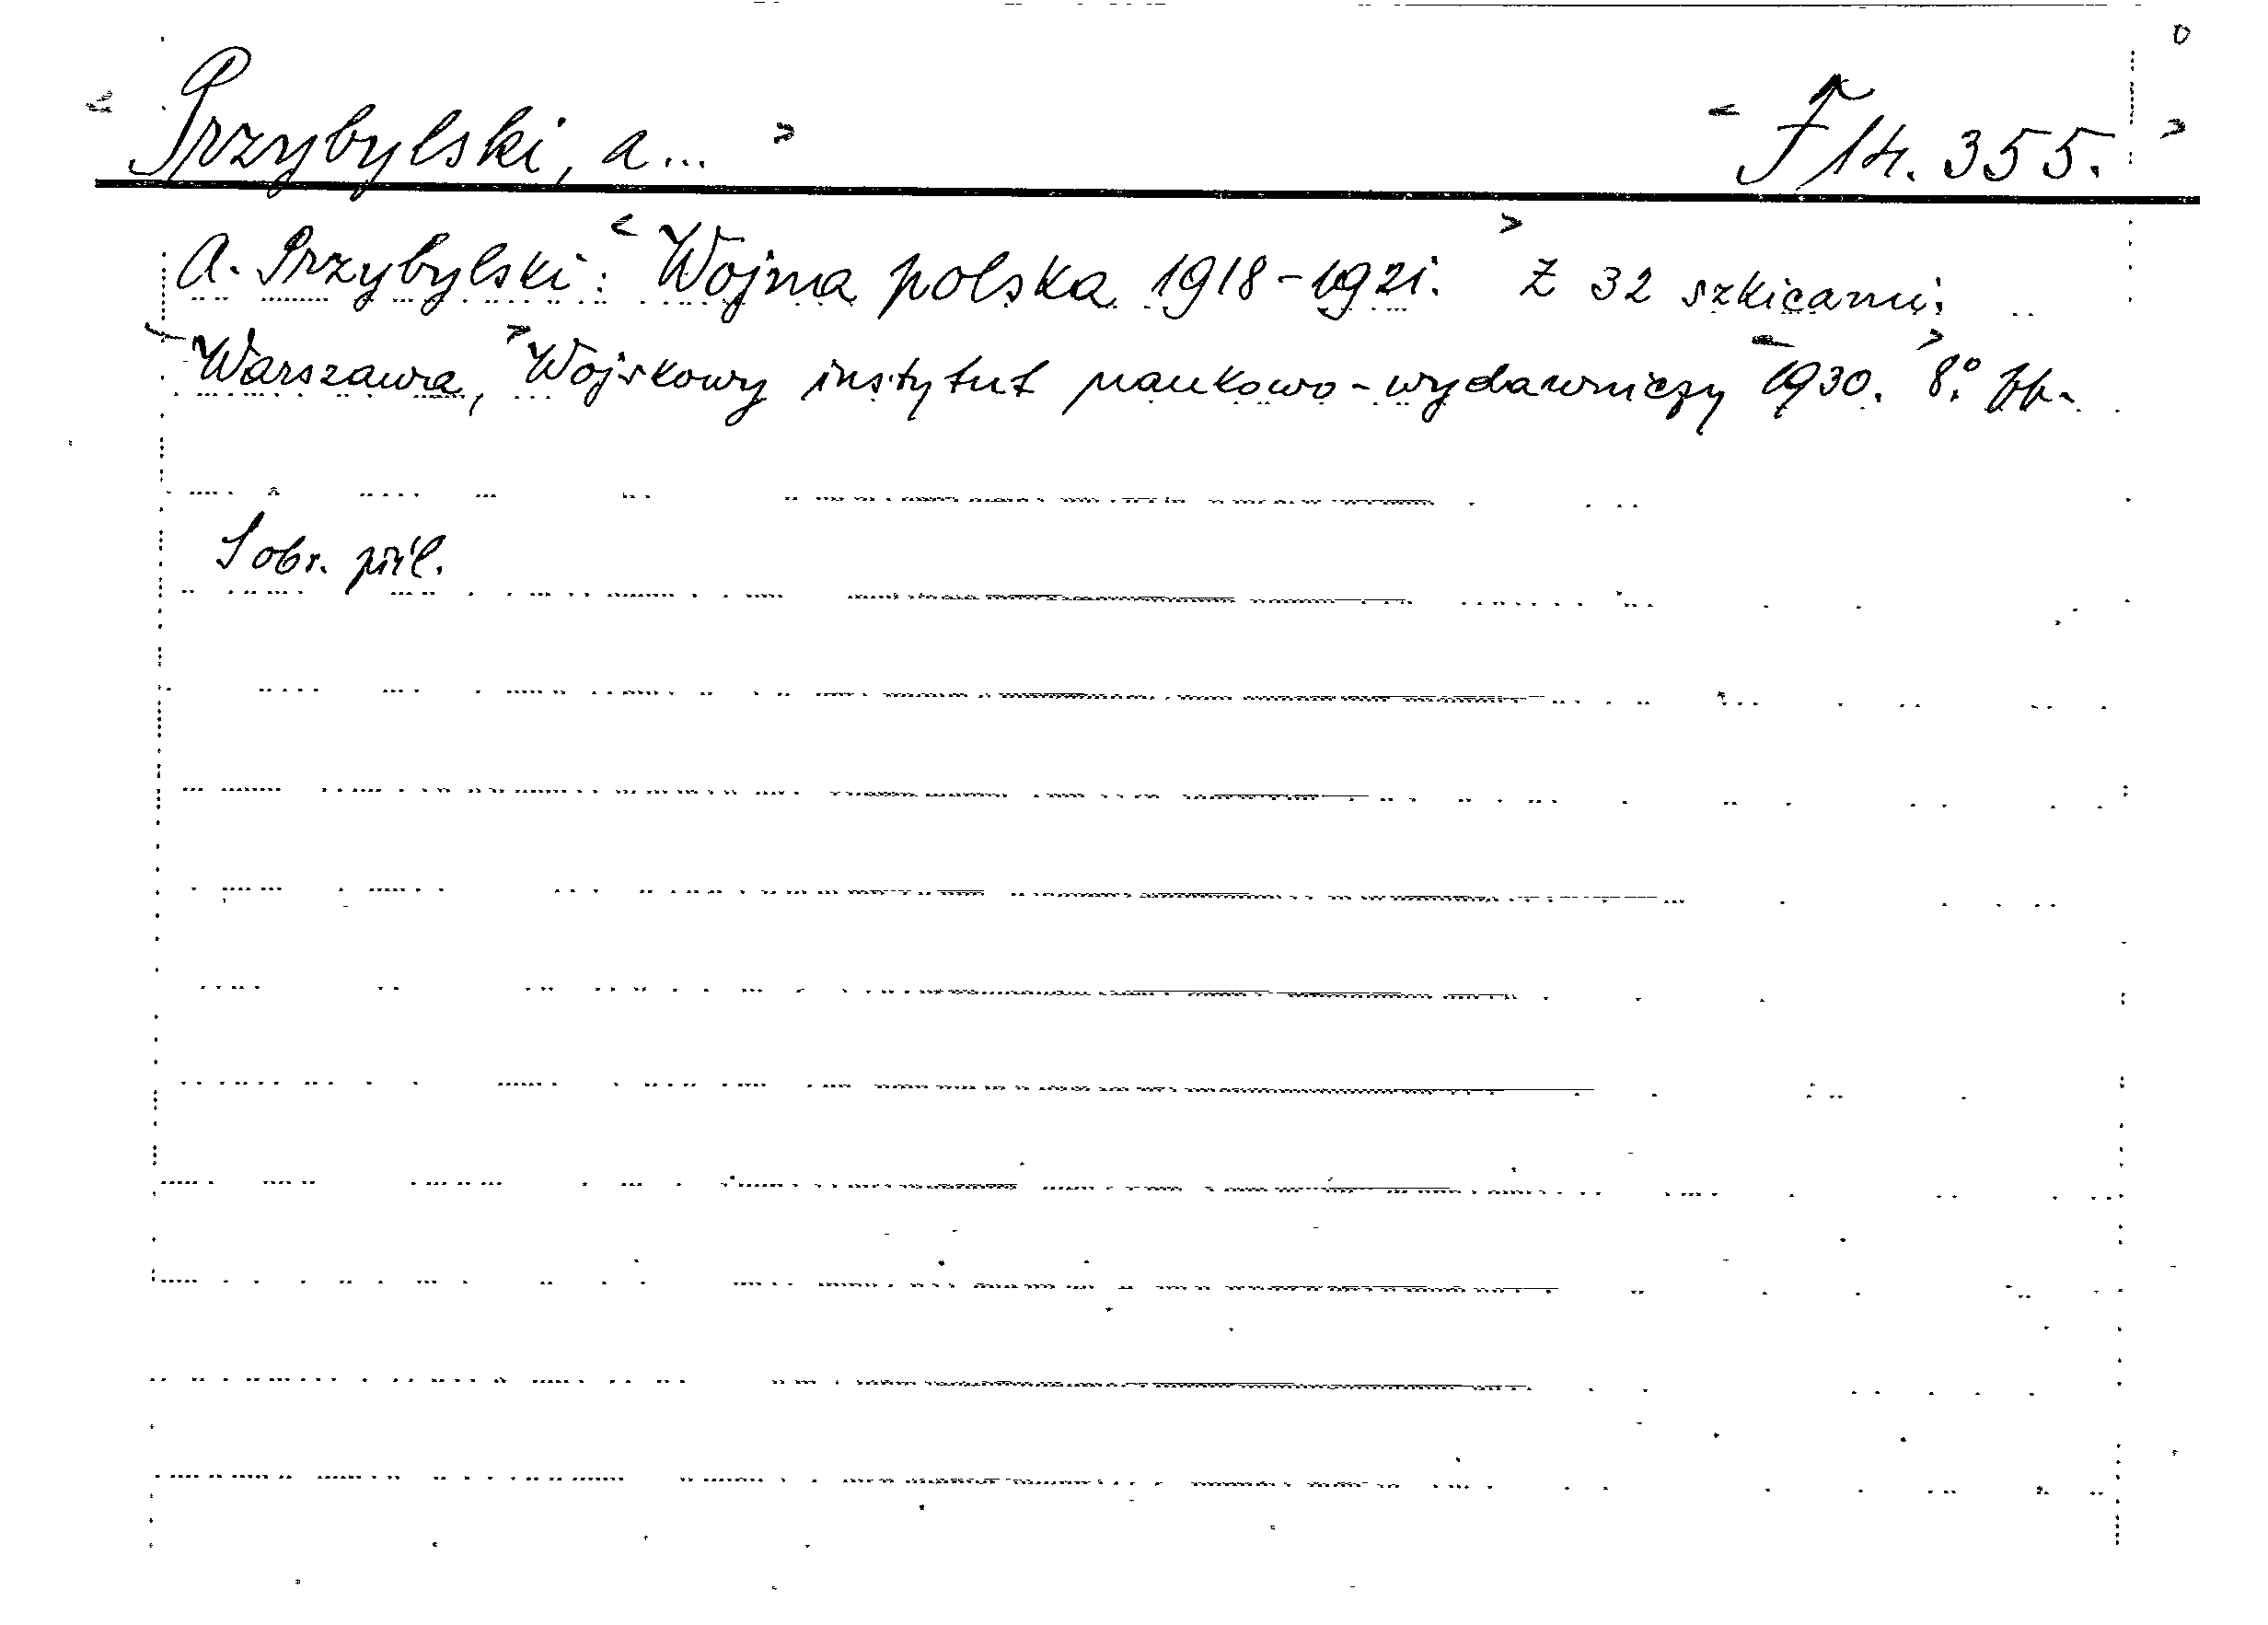 < Przybylski, A... > < F 14.355. >
A. Przybylski: < Wojna polska 1918-1921. > Z 32 szkicami.
< Warszawa, > Wojskowy instytut naukowo-wydawniczy < 1930. > 8°.
S obr. příl.